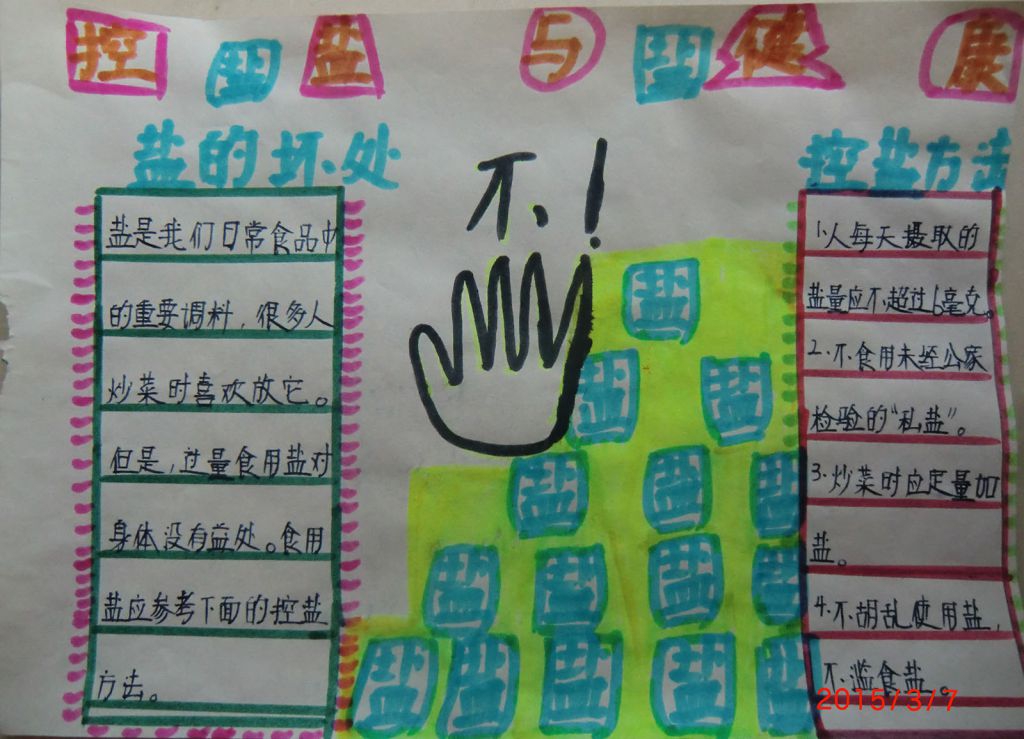 控盐与健康
盐的坏处
盐是我们日常食品中
的重要调料，很多人
炒菜时喜欢放它。
但是，过量食用盐对
身体没有益处。食用
盐应参考下面的控盐
方法。
不！
盐
盐 盐
盐 盐 盐
盐 盐 盐 盐
盐 盐 盐 盐 盐
控盐方法
1.人每天摄取的
盐量应不超过6毫克。
2.不食用未经公家
检验的“私盐”。
3.炒菜时应定量加
盐。
4.不胡乱使用盐，
不滥食盐。
2015/3/7